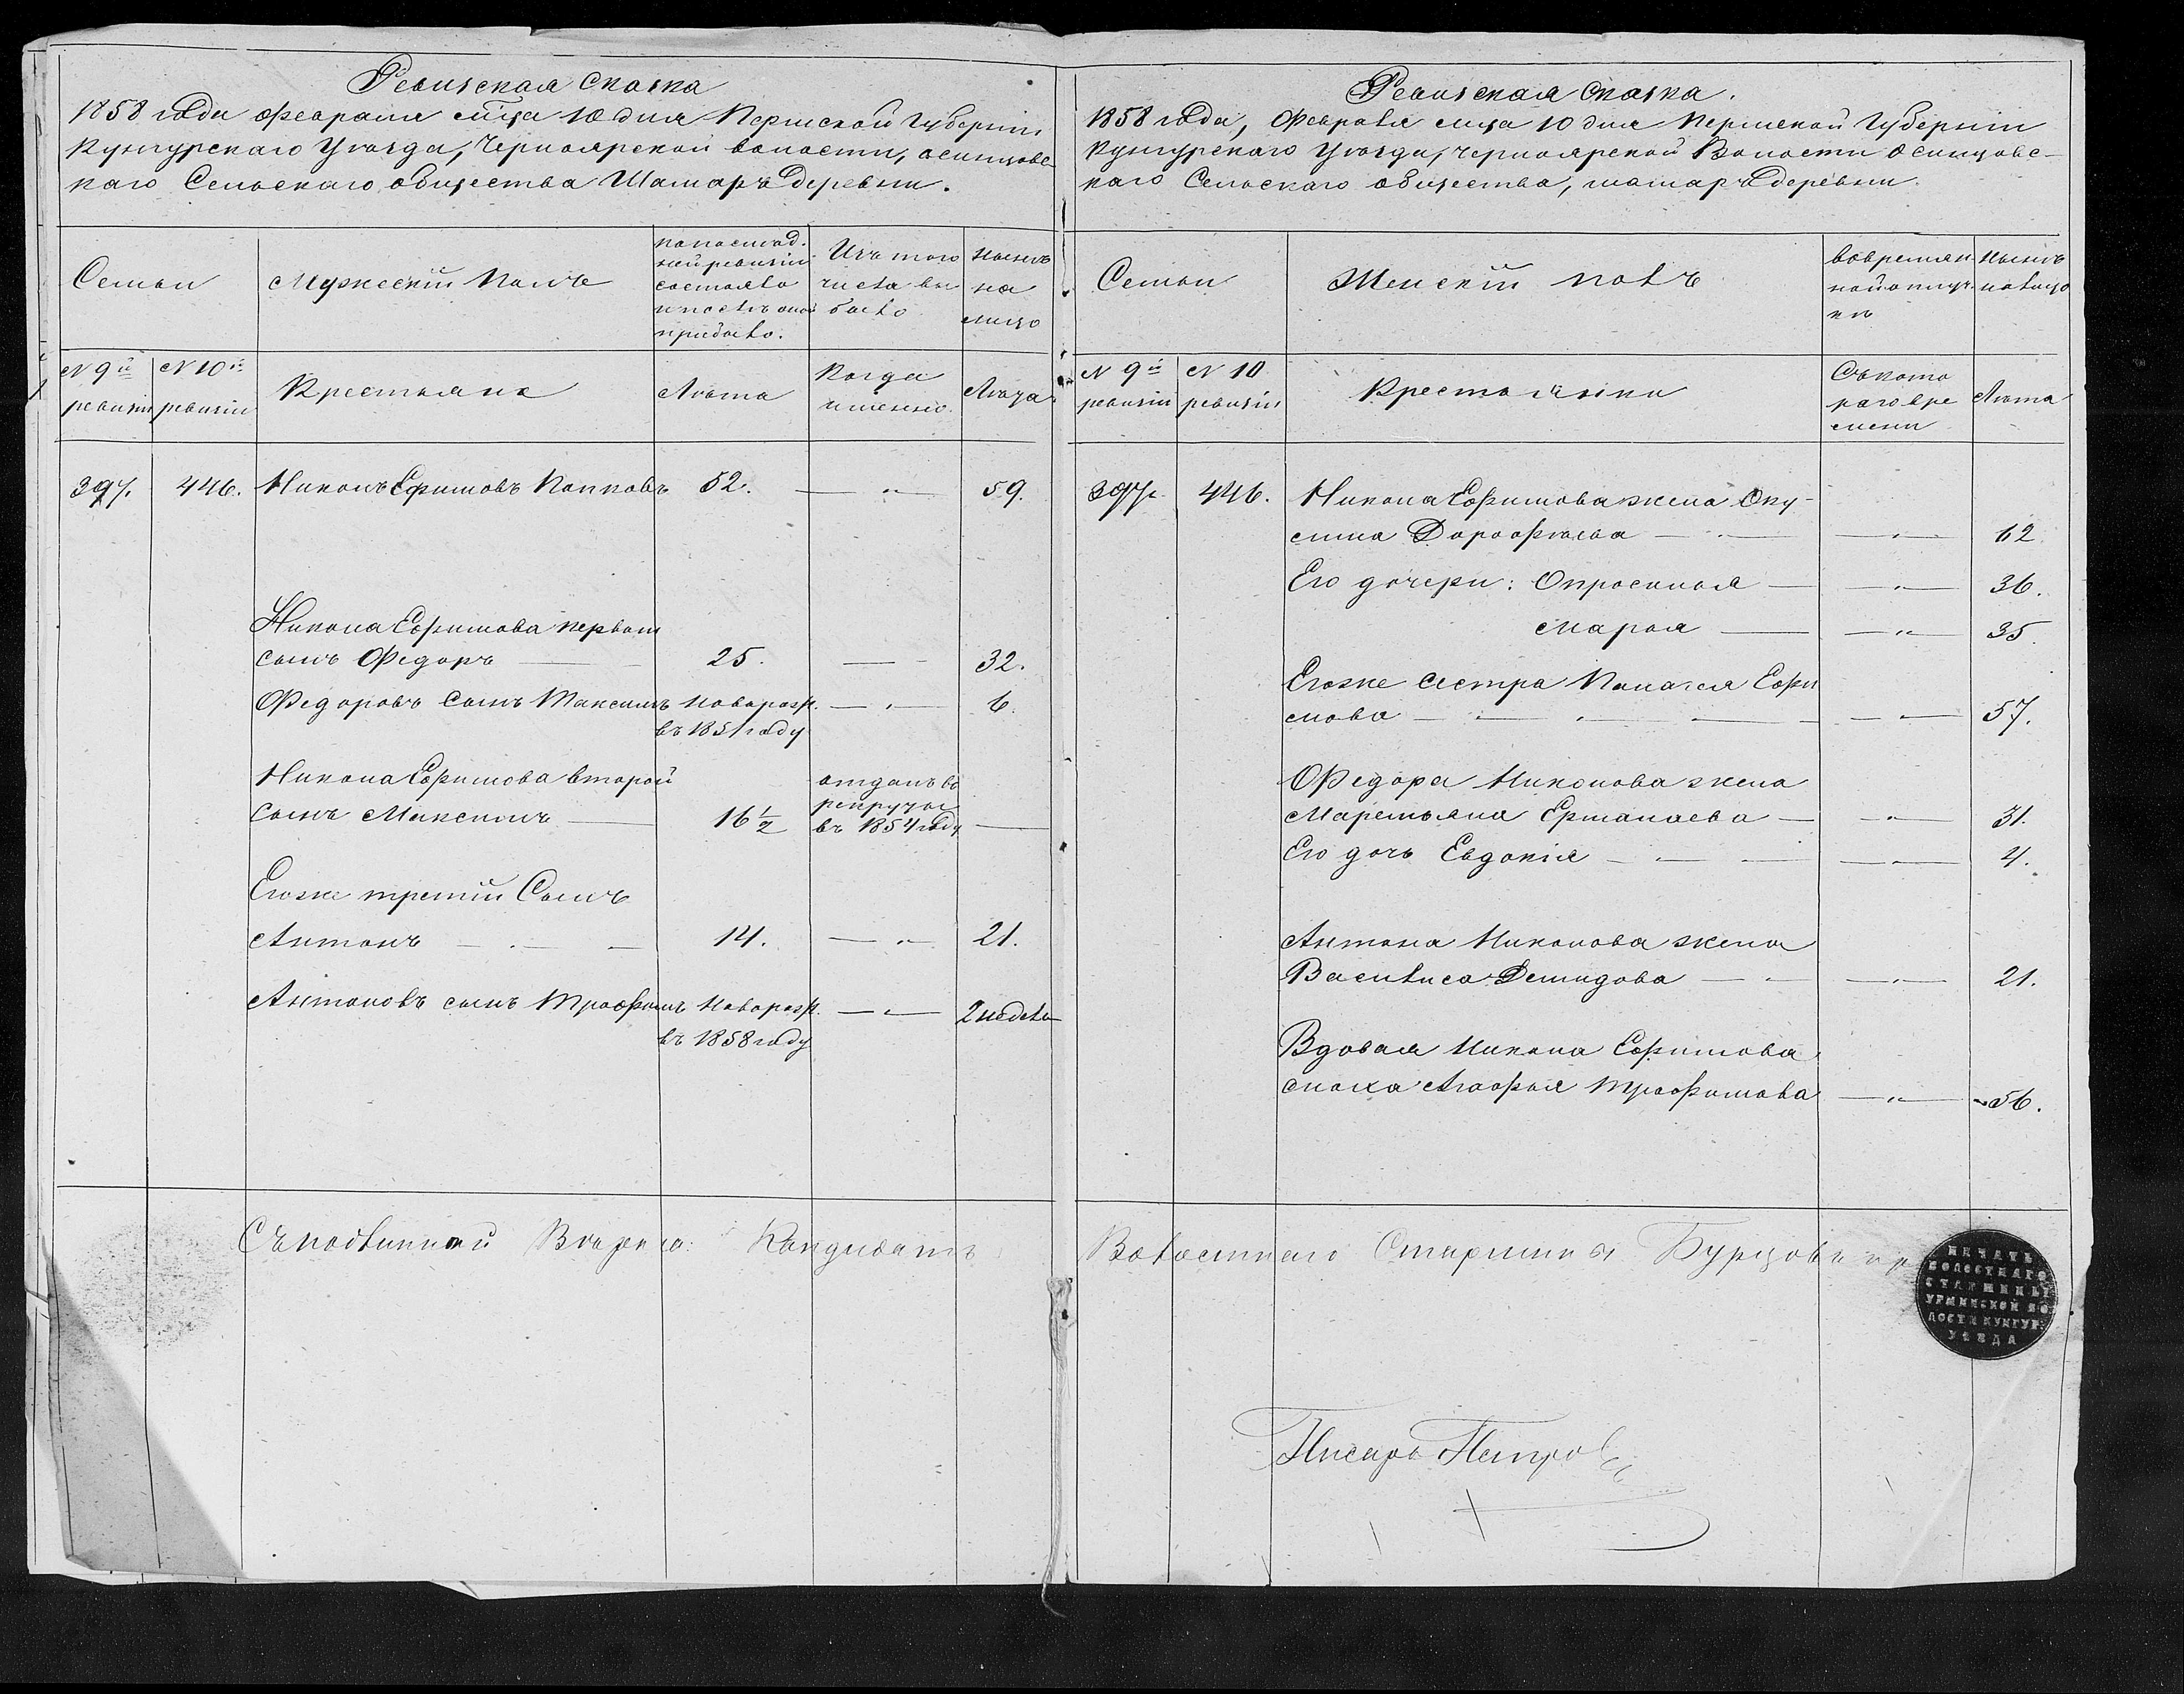 Ревизская сказка
1858 года февраля м͠ца 10 дня Пермской губернiи
Кунгурскаго Уѣзда, Черноярской волости, осинцовс
каго Сельскаго общества Шатаръ деревни.
Семьи
Мужескiй полъ
по послѣд.
ней ревизiи
состояло
и послѣ оной
прибыло.
Изъ того
числа вы
было
нынѣ
на
лицо
N 9й
ревизiи
N 10й
ревизiи
Крестьяне
Лѣта
Когда
именно
Лѣта
397. 446. Никонъ Ефимовъ Попковъ 52. — „ — 59.
Никона Ефимова первой
сынъ Федоръ — 25. — 32.
Федоровъ сынъ Максимъ новорозж. — „ — 6.
въ 1851 году
Никона Ефимова второй
сынъ Максимъ — 16½
отданъ въ
рекруты
въ 1854 году —
Егоже третiй Сынъ
Антонъ — 14. — „ — 21.
Антоновъ сынъ Трофимъ новорозж. — „ — 2 недели
въ 1858 году
Съ подлинной Вѣрно: Кандидатъ
Ревизская сказка.
1858 года, февраля м͠ца 10 дня Пермской Губернiи
Кунгурскаго Уѣзда, Черноярской Волости Осинцовс-
каго Сельскаго общества, шатаръ деревни.
Семьи
Женскiй полъ
во времян
ной отлуч
кѣ
нынѣ
на лицо
N 9й
ревизiи
N 10
ревизiи
Крестьянки
Съ кото
раго вре
мени
Лѣта
397. 446. Никона Ефимова жена Оку-
лина Дорофѣева — „ — 62
Его дочери: Опросинья — „ — 36.
Марья — „ — 35.
Егоже сестра Палагея Ефи
мова — „ — 57.
Федора Никонова жена
Маремьяна Ермалаева — „ — 31.
Его дочь Евдокiя — „ — 4.
Антона Никонова жена
Василиса Демидова — „ — 21.
Вдовая Никона Ефимова
сноха Агафья Трофимова — „ — 56.
Волостнаго Старшины Бурцовъ
ПЕЧАТЬ
ВОЛОСТНАГО
СТАРШИНЫ
УРМИНСКОЙ ВО
ЛОСТИ КУНГУР:
УѢЗДА
Писарь Петровъ